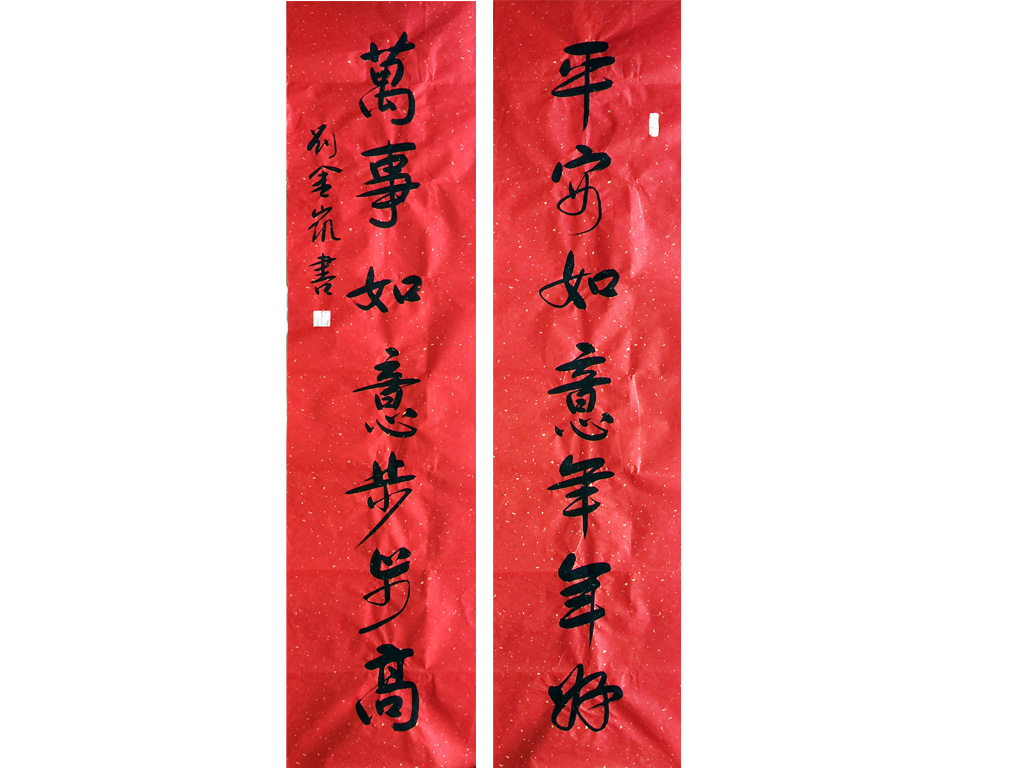 平安如意年年好
萬事如意步步高
刘金凯書